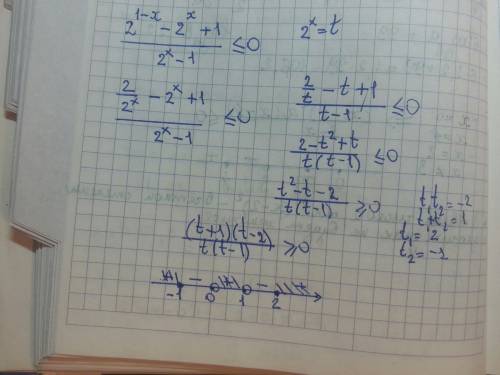 (2^(1-x) - 2^x + 1)/(2^x - 1) ≤ 0
2^x = t
(2/2^x - 2^x + 1)/(2^x - 1) ≤ 0
(2/t - t + 1)/(t - 1) ≤ 0
(2 - t^2 + t)/(t(t-1)) ≤ 0
(t^2 - t - 2)/(t(t-1)) ≥ 0
t t_2 = -2
t + t = 1
t_1 = 2
t_2 = -1
((t+1)(t-2))/(t(t-1)) ≥ 0
+ - + - +
-1 0 1 2